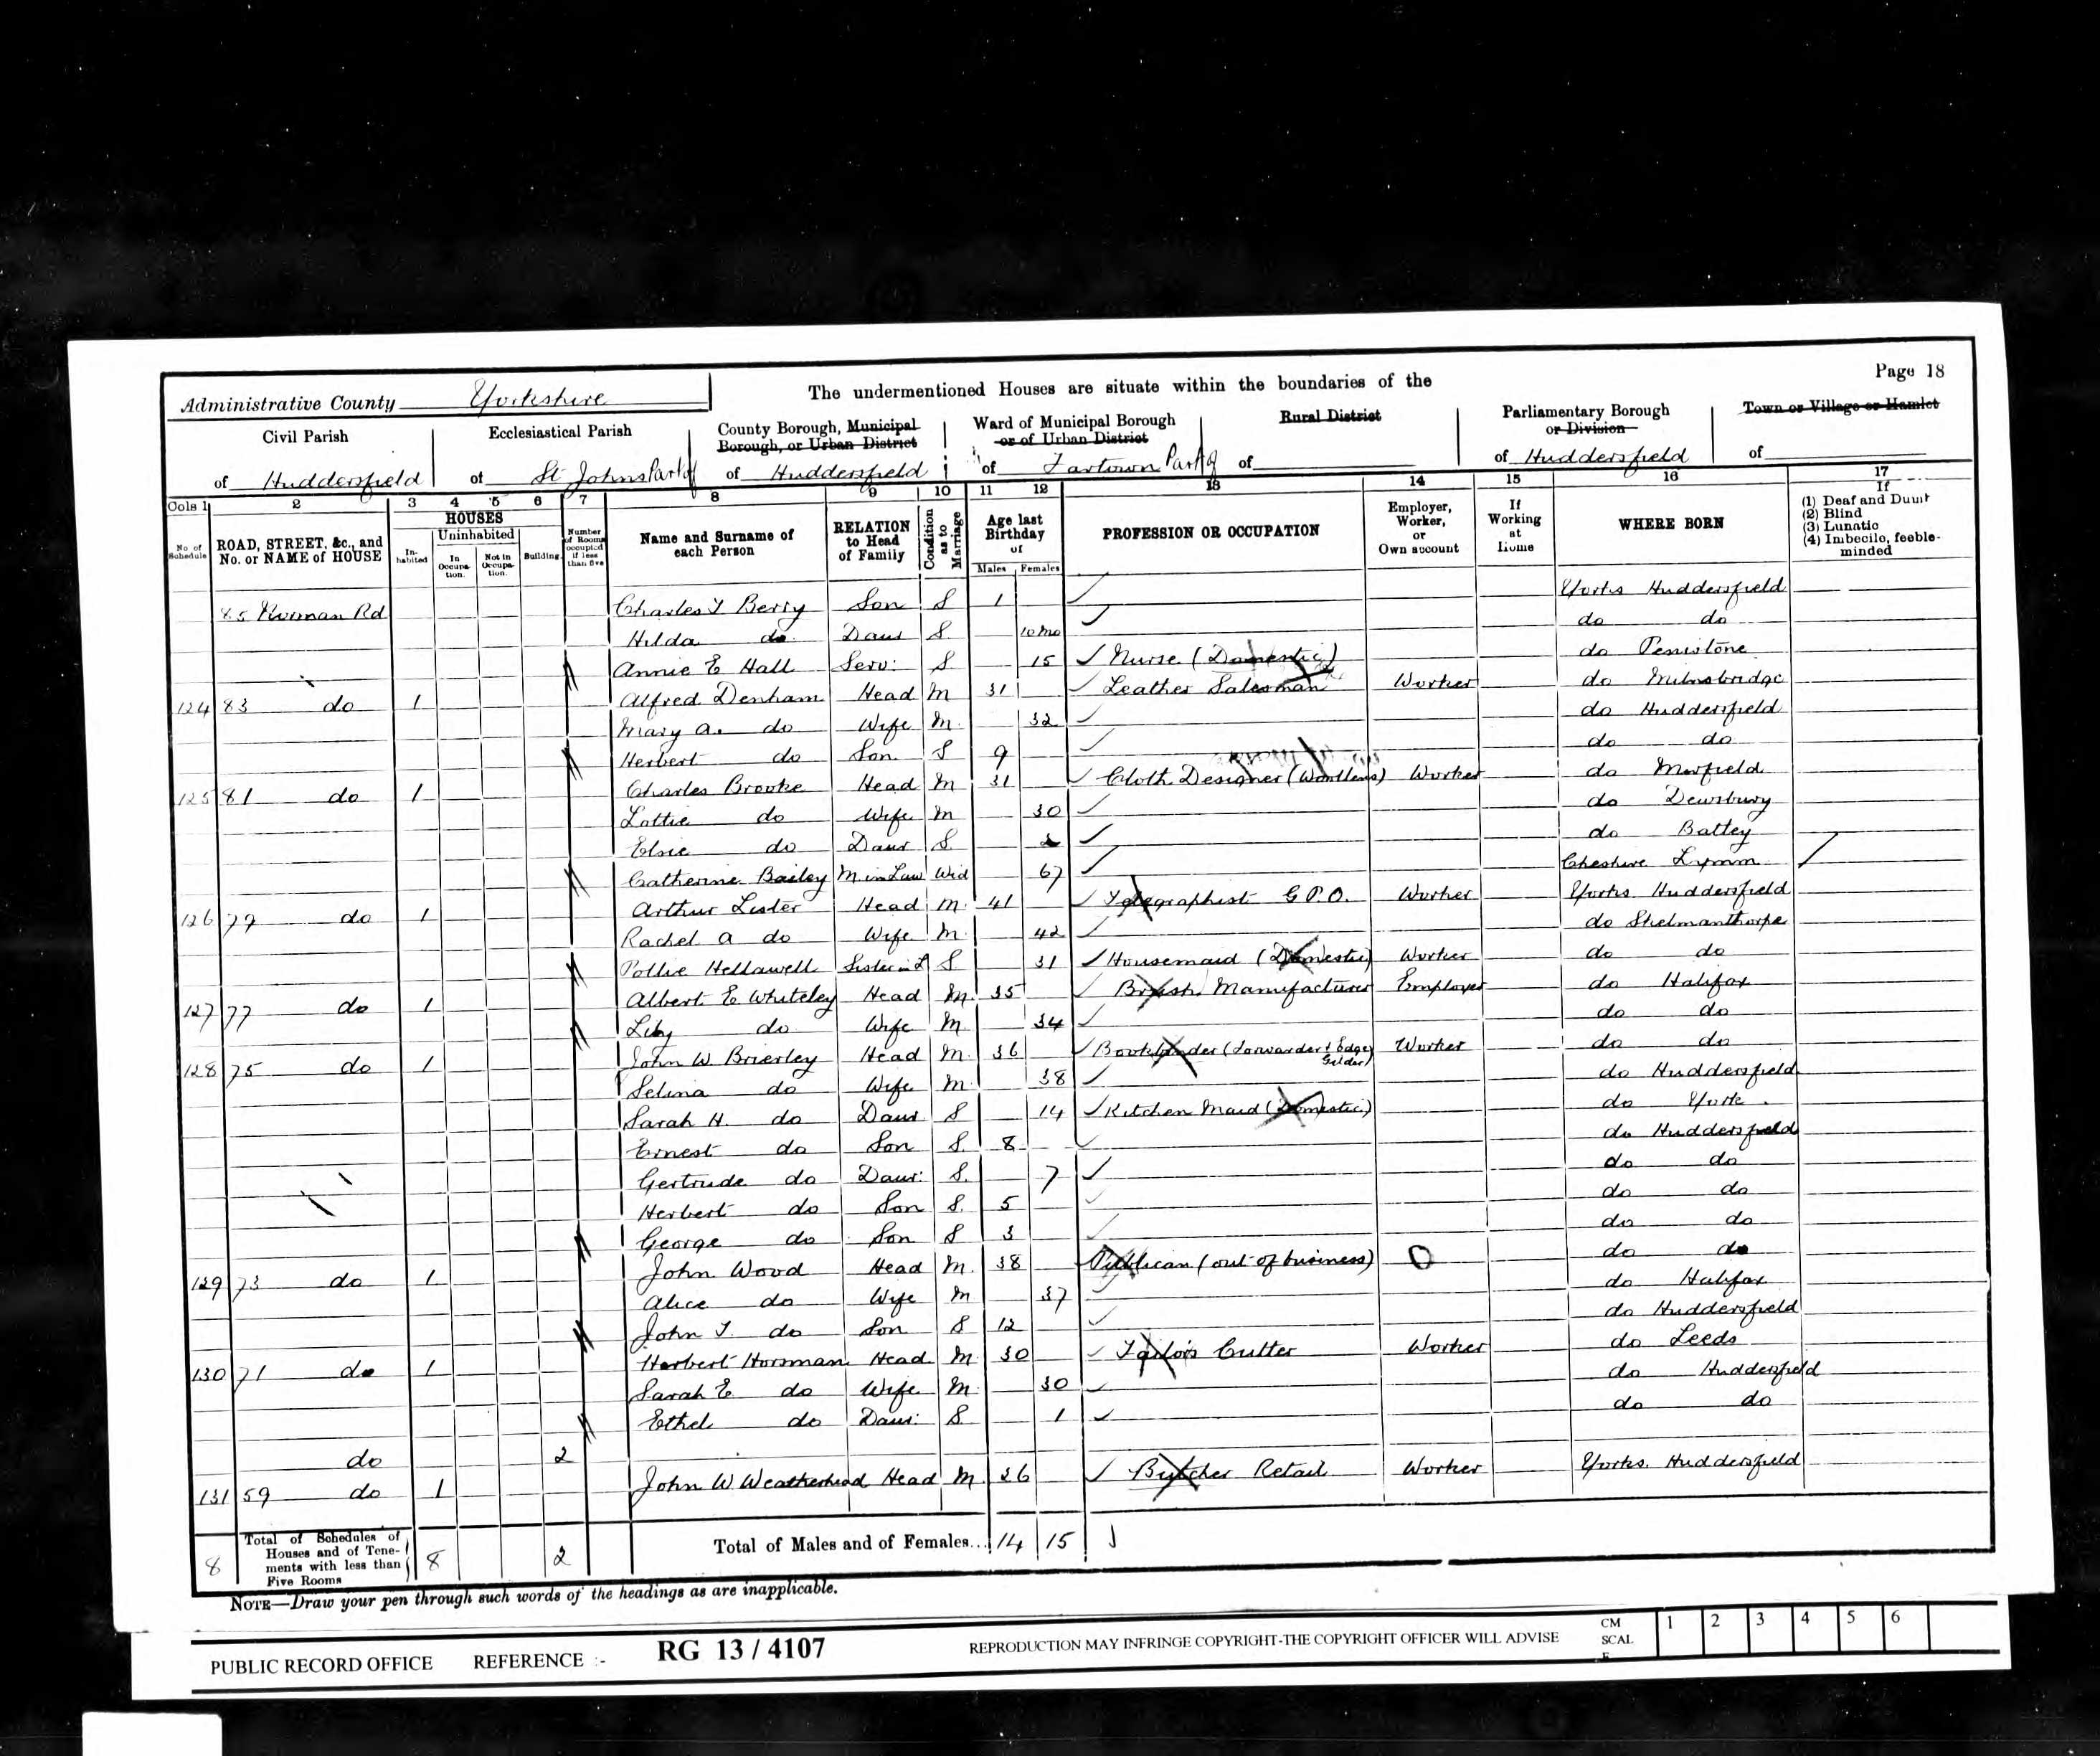 Page 18
Administrative County Yorkshire
The undermentioned Houses are situate within the boundaries of the
Civil Parish of Huddersfield
Ecclesiastical Parish of St Johns Part of
County Borough, Municipal Borough, or Urban District of Huddersfield
Ward of Municipal Borough or of Urban District of Fartown Part of
Rural District of
Parliamentary Borough or Division of Huddersfield
Town or Village or Hamlet of
Cols 1 2 3 4 5 6 7 8 9 10 11 12 13 14 15 16 17
No. of Schedule
ROAD, STREET, &c., and No. or NAME of HOUSE
HOUSES
In-habited
Uninhabited
In Occupa-tion.
Not in Occupa-tion.
Building
Number of Rooms occupied if less than five
Name and Surname of each Person
RELATION to Head of Family
Condition as to Marriage
Age last Birthday of
Males Females
PROFESSION OR OCCUPATION
Employer, Worker, or Own account
If Working at Home
WHERE BORN
If
(1) Deaf and Dumb
(2) Blind
(3) Lunatic
(4) Imbecile, feeble-minded
85 Norman Rd Charles Y Berry Son S 1 Yorks Huddersfield
Hilda do Daur S 10 mo do do
Annie E Hall Serv: S 15 Nurse (Domestic) do Penistone
124 83 do 1 Alfred Denham Head M 31 Leather Salesman Worker do Milnsbridge
Mary A. do Wife M 32 do Huddersfield
Herbert do Son S 9 do do
125 81 do 1 Charles Brooke Head M 31 Cloth Designer (Woollens) Worker do Mirfield
Lottie do Wife M 30 do Dewsbury
Elsie do Daur S 2 do Batley
Catherine Bailey M. in Law Wid 67 Cheshire Lymm
126 79 do 1 Arthur Lister Head M 41 Telegraphist G.P.O. Worker Yorks Huddersfield
Rachel A do Wife M 42 do Skelmanthorpe
Pollie Hellawell Sister in L S 31 Housemaid (Domestic) Worker do do
127 77 do 1 Albert E Whiteley Head M 35 Brush Manufacturer Employer do Halifax
Lily do Wife M 34 do do
128 75 do 1 John W. Brierley Head M 36 Bookbinder (Forwarder & Edge Gilder) Worker do do
Selina do Wife M 38 do Huddersfield
Sarah H. do Daur S 14 Kitchen Maid (Domestic) do York
Ernest do Son S 8 do Huddersfield
Gertrude do Daur: S 7 do do
Herbert do Son S 5 do do
George do Son S 3 do do
129 73 do 1 John Wood Head M 38 Publican (out of business) do do
Alice do Wife M 37 do Halifax
John T. do Son S 12 do Huddersfield
130 71 do 1 Herbert Horsman Head M 30 Tailors Cutter Worker do Leeds
Sarah E do Wife M 30 do Huddersfield
Ethel do Daur: S 1 do do
do 2
131 59 do 1 John W Weatherhead Head M 36 Butcher Retail Worker Yorks Huddersfield
8 Total of Schedules of Houses and of Tene-ments with less than Five Rooms 8 2 Total of Males and of Females... 14 15
NOTE—Draw your pen through such words of the headings as are inapplicable.
PUBLIC RECORD OFFICE REFERENCE :- RG 13 / 4107 REPRODUCTION MAY INFRINGE COPYRIGHT-THE COPYRIGHT OFFICER WILL ADVISE CM SCALE 1 2 3 4 5 6